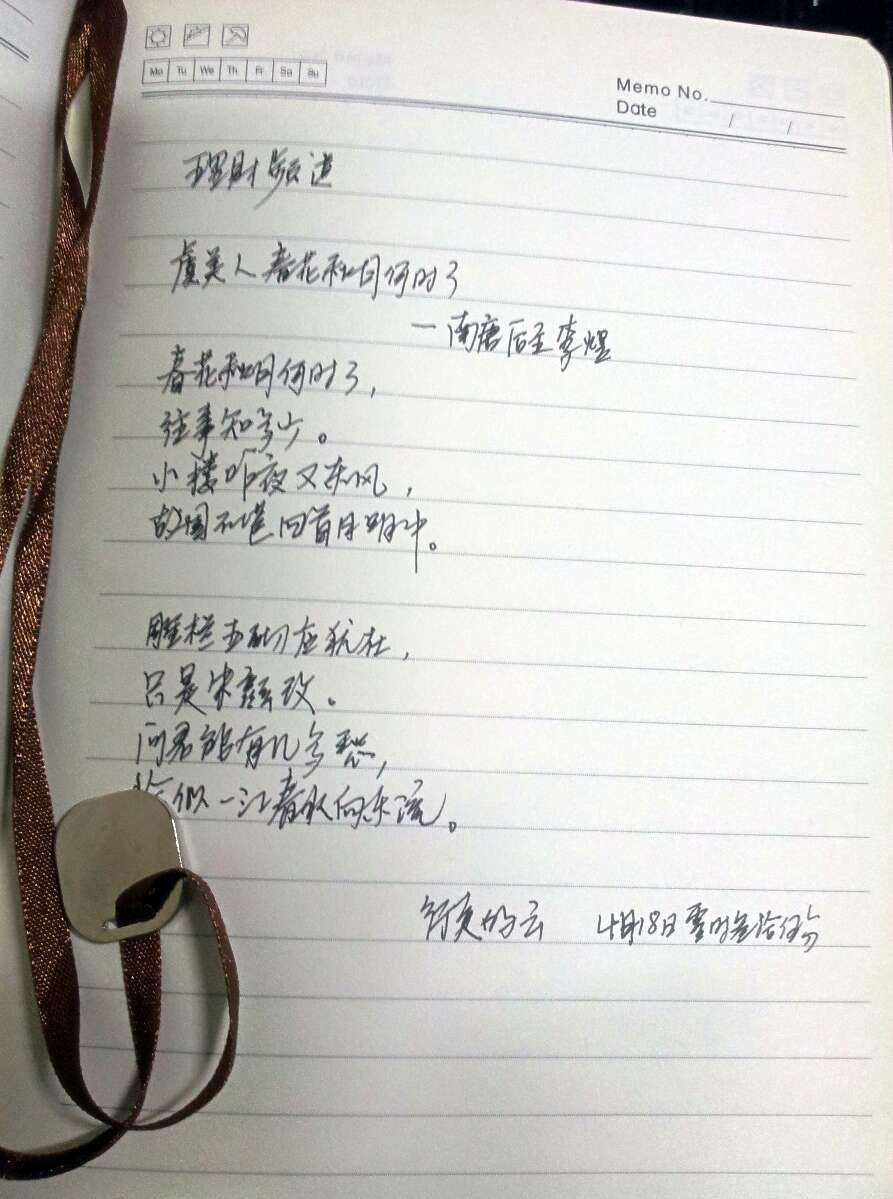 Mo Tu We Th Fr Sa Su
Memo No.
Date / /
理财频道
虞美人 春花秋月何时了
一南唐后主李煜
春花秋月何时了，
往事知多少。
小楼昨夜又东风，
故国不堪回首月明中。
雕栏玉砌应犹在，
只是朱颜改。
问君能有几多愁，
恰似一江春水向东流。
的云 4月18日零时